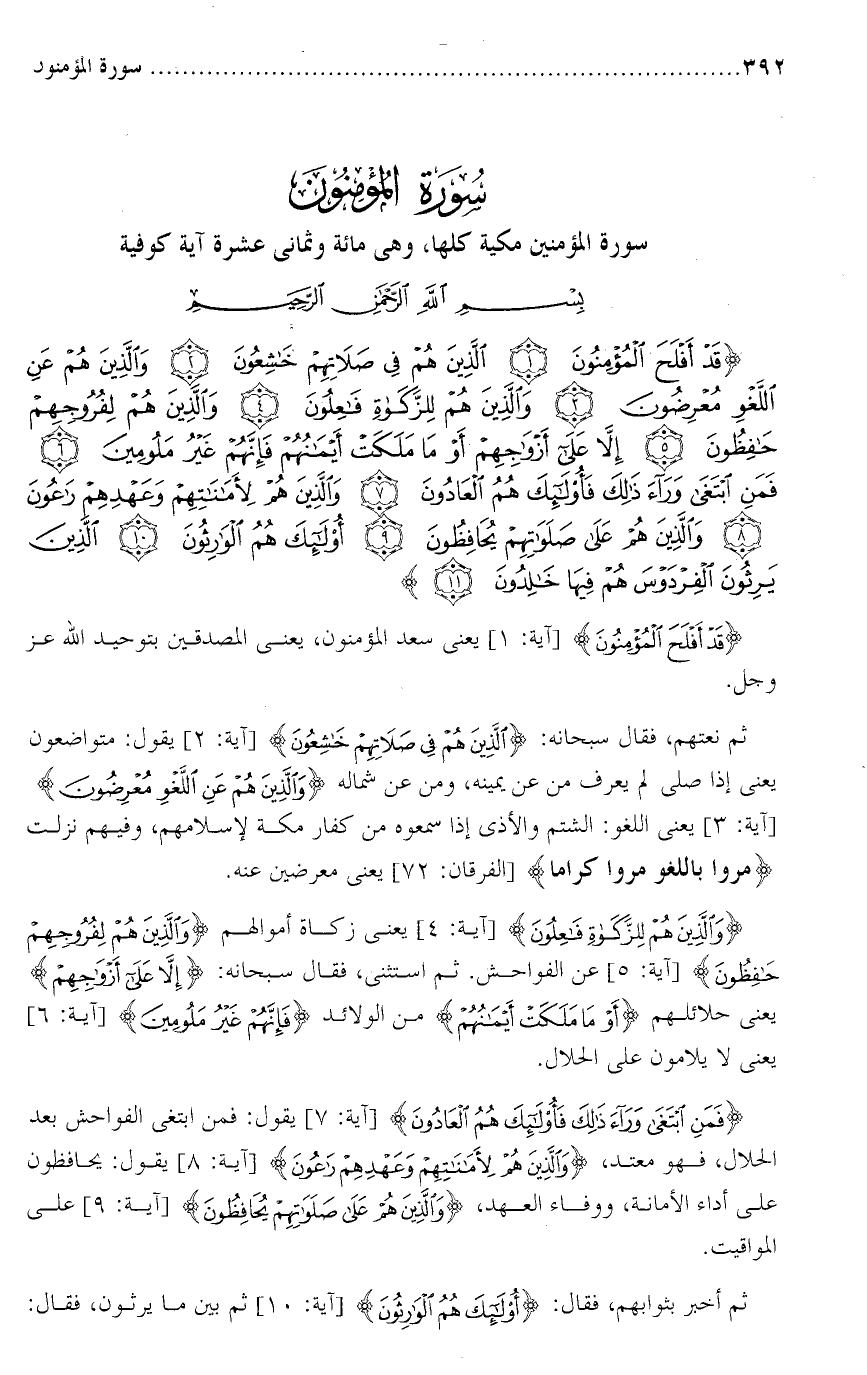 ٣٩٢ ........................................................................ سورة المؤمنون
سُورَةُ الْمُؤْمِنُونَ
سورة المؤمنين مكية كلها، وهى مائة وثمانى عشرة آية كوفية
بِسْمِ ٱللَّهِ ٱلرَّحْمَٰنِ ٱلرَّحِيمِ
﴿قَدْ أَفْلَحَ ٱلْمُؤْمِنُونَ ١ ٱلَّذِينَ هُمْ فِي صَلَاتِهِمْ خَٰشِعُونَ ٢ وَٱلَّذِينَ هُمْ عَنِ
ٱللَّغْوِ مُعْرِضُونَ ٣ وَٱلَّذِينَ هُمْ لِلزَّكَوٰةِ فَٰعِلُونَ ٤ وَٱلَّذِينَ هُمْ لِفُرُوجِهِمْ
حَٰفِظُونَ ٥ إِلَّا عَلَىٰٓ أَزْوَٰجِهِمْ أَوْ مَا مَلَكَتْ أَيْمَٰنُهُمْ فَإِنَّهُمْ غَيْرُ مَلُومِينَ ٦
فَمَنِ ٱبْتَغَىٰ وَرَآءَ ذَٰلِكَ فَأُو۟لَٰٓئِكَ هُمُ ٱلْعَادُونَ ٧ وَٱلَّذِينَ هُمْ لِأَمَٰنَٰتِهِمْ وَعَهْدِهِمْ رَٰعُونَ
٨ وَٱلَّذِينَ هُمْ عَلَىٰ صَلَوَٰتِهِمْ يُحَافِظُونَ ٩ أُو۟لَٰٓئِكَ هُمُ ٱلْوَٰرِثُونَ ١٠ ٱلَّذِينَ
يَرِثُونَ ٱلْفِرْدَوْسَ هُمْ فِيهَا خَٰلِدُونَ ١١ ﴾
﴿قَدْ أَفْلَحَ ٱلْمُؤْمِنُونَ﴾ [آية: ١] يعنى سعد المؤمنون، يعنى المصدقين بتوحيد الله عز
وجل.
ثم نعتهم، فقال سبحانه: ﴿ٱلَّذِينَ هُمْ فِي صَلَاتِهِمْ خَٰشِعُونَ﴾ [آية: ٢] يقول: متواضعون
يعنى إذا صلى لم يعرف من عن يمينه، ومن عن شماله ﴿وَٱلَّذِينَ هُمْ عَنِ ٱللَّغْوِ مُعْرِضُونَ﴾
[آية: ٣] يعنى اللغو: الشتم والأذى إذا سمعوه من كفار مكة لإسلامهم، وفيهم نزلت
﴿مروا باللغو مروا كراما﴾ [الفرقان: ٧٢] يعنى معرضين عنه.
﴿وَٱلَّذِينَ هُمْ لِلزَّكَوٰةِ فَٰعِلُونَ﴾ [آية: ٤] يعنى زكاة أموالهم ﴿وَٱلَّذِينَ هُمْ لِفُرُوجِهِمْ
حَٰفِظُونَ﴾ [آية: ٥] عن الفواحش. ثم استثنى، فقال سبحانه: ﴿إِلَّا عَلَىٰٓ أَزْوَٰجِهِمْ﴾
يعنى حلائلهم ﴿أَوْ مَا مَلَكَتْ أَيْمَٰنُهُمْ﴾ من الولائد ﴿فَإِنَّهُمْ غَيْرُ مَلُومِينَ﴾ [آية: ٦]
يعنى لا يلامون على الحلال.
﴿فَمَنِ ٱبْتَغَىٰ وَرَآءَ ذَٰلِكَ فَأُو۟لَٰٓئِكَ هُمُ ٱلْعَادُونَ﴾ [آية: ٧] يقول: فمن ابتغى الفواحش بعد
الحلال، فهو معتد، ﴿وَٱلَّذِينَ هُمْ لِأَمَٰنَٰتِهِمْ وَعَهْدِهِمْ رَٰعُونَ﴾ [آية: ٨] يقول: يحافظون
على أداء الأمانة، ووفاء العهد، ﴿وَٱلَّذِينَ هُمْ عَلَىٰ صَلَوَٰتِهِمْ يُحَافِظُونَ﴾ [آية: ٩] على
المواقيت.
ثم أخبر بثوابهم، فقال: ﴿أُو۟لَٰٓئِكَ هُمُ ٱلْوَٰرِثُونَ﴾ [آية: ١٠] ثم بين ما يرثون، فقال: